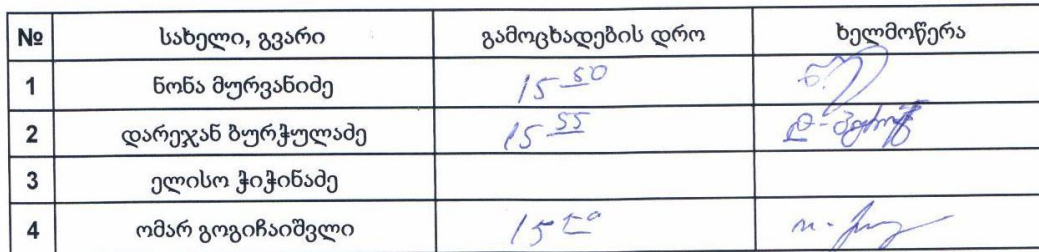 № სახელი, გვარი გამოცხადების დრო ხელმოწერა
1 ნონა მურვანიძე 15 50
2 დარეჯან ბურჭულაძე 15 55
3 ელისო ჭიჭინაძე
4 ომარ გოგიჩაიშვლი 15 50